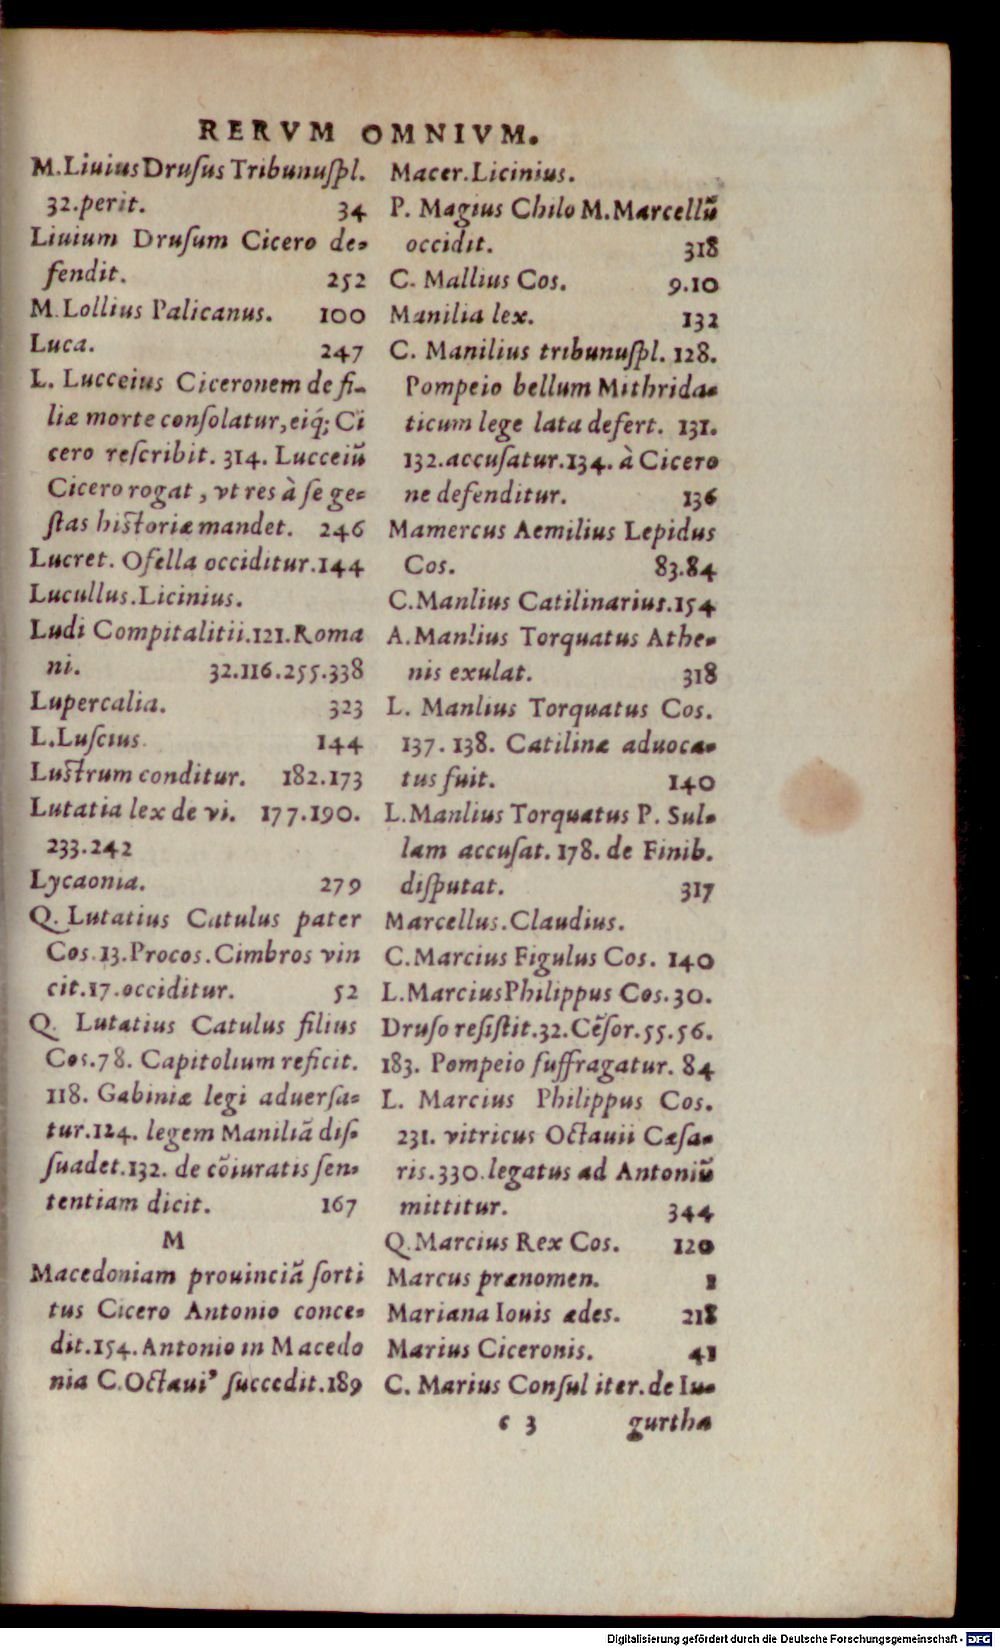 RERVM OMNIVM.
M.Liuius Druſus Tribunuſpl.
32.perit. 34
Liuium Druſum Cicero de=
fendit. 252
M.Lollius Palicanus. 100
Luca. 247
L. Lucceius Ciceronem de fi-
liæ morte conſolatur, eiq́; Ci
cero reſcribit. 314. Lucceiũ
Cicero rogat, vt res à ſe ge=
ſtas hiſtoriæ mandet. 246
Lucret. Ofella occiditur.144
Lucullus.Licinius.
Ludi Compitalitii.121.Roma
ni. 32.116.255.338
Lupercalia. 323
L.Luſcius. 144
Luſtrum conditur. 182.173
Lutatia lex de vi. 177.190.
233.242
Lycaonia. 279
Q. Lutatius Catulus pater
Cos.13.Procos.Cimbros vin
cit.17.occiditur. 52
Q. Lutatius Catulus filius
Cos.78. Capitolium reficit.
118. Gabiniæ legi aduerſa=
tur.124. legem Maniliã diſ=
ſuadet.132. de cõiuratis ſen=
tentiam dicit. 167
M
Macedoniam prouinciã ſorti
tus Cicero Antonio conce=
dit.154.Antonio in Macedo
nia C.Octaui' ſuccedit.189
Macer.Licinius.
P. Magius Chilo M.Marcellũ
occidit. 318
C. Mallius Cos. 9.10
Manilia lex. 132
C. Manilius tribunuſpl. 128.
Pompeio bellum Mithrida=
ticum lege lata defert. 131.
132.accuſatur.134. à Cicero
ne defenditur. 136
Mamercus Aemilius Lepidus
Cos. 83.84
C.Manlius Catilinarius.154
A.Manlius Torquatus Athe=
nis exulat. 318
L. Manlius Torquatus Cos.
137. 138. Catilinæ aduoca=
tus fuit. 140
L.Manlius Torquatus P. Sul=
lam accuſat. 178. de Finib.
diſputat. 317
Marcellus.Claudius.
C.Marcius Figulus Cos. 140
L.Marcius Philippus Cos.30.
Druſo reſiſtit.32.Cẽſor.55.56.
183. Pompeio ſuffragatur. 84
L. Marcius Philippus Cos.
231. vitricus Octauii Cæſa=
ris.330.legatus ad Antoniũ
mittitur. 344
Q.Marcius Rex Cos. 120
Marcus prænomen. 1
Mariana Iouis ædes. 218
Marius Ciceronis. 41
C. Marius Conſul iter.de Iu=
c 3 gurtha
Digitalisierung gefördert durch die Deutsche Forschungsgemeinschaft - DFG